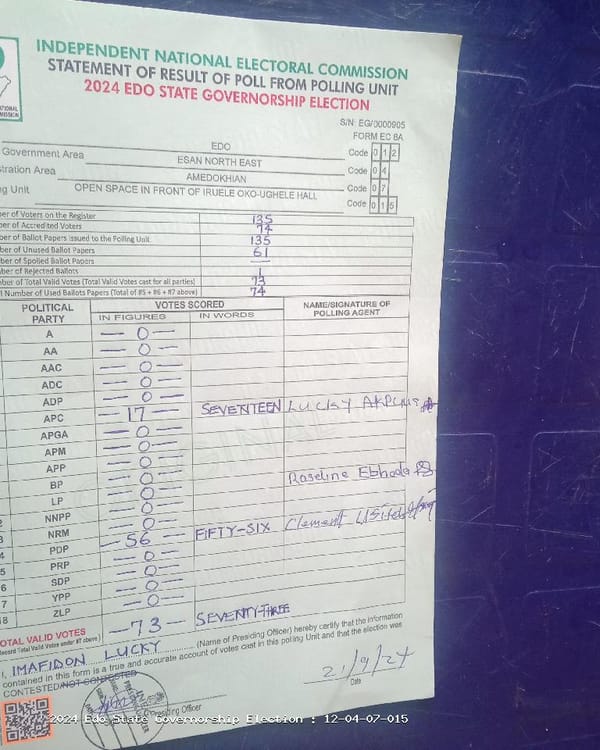 INDEPENDENT NATIONAL ELECTORAL COMMISSION
STATEMENT OF RESULT OF POLL FROM POLLING UNIT
2024 EDO STATE GOVERNORSHIP ELECTION
S/N: EG/0000905
FORM EC 8A
EDO Code 012
Government Area ESAN NORTH EAST Code 04
stration Area AMEDOKHIAN Code 07
ng Unit OPEN SPACE IN FRONT OF IRUELE OKO-UGHELE HALL Code 015
ber of Voters on the Register 135
er of Accredited Voters 74
er of Ballot Papers Issued to the Polling Unit 135
er of Unused Ballot Papers 61
er of Spoiled Ballot Papers —
er of Rejected Ballots 1
er of Total Valid Votes (Total Valid Votes cast for all parties) 73
l Number of Used Ballots Papers (Total of #5 + #6 + #7 above) 74
POLITICAL PARTY VOTES SCORED NAME/SIGNATURE OF POLLING AGENT
IN FIGURES IN WORDS
A — 0 —
AA — 0 —
AAC — 0 —
ADC — 0 —
ADP — 0 —
APC — 17 — SEVENTEEN LUCKY
APGA — 0 —
APM — 0 —
APP — 0 —
BP — 0 —
LP — 0 — Roseline
NNPP — 0 —
NRM — 0 —
PDP — 56 — FIFTY-SIX Clement
PRP — 0 —
SDP — 0 —
YPP — 0 —
ZLP — 0 —
OTAL VALID VOTES — 73 — SEVENTY-THREE
ecord Total Valid Votes under #7 above)
I, IMAFIDON LUCKY (Name of Presiding Officer) hereby certify that the information
contained in this form is a true and accurate account of votes cast in this polling Unit and that the election was
CONTESTED/NOT CONTESTED
21/9/24
Date
Presiding Officer
2024 Edo State Governorship Election : 12-04-07-015